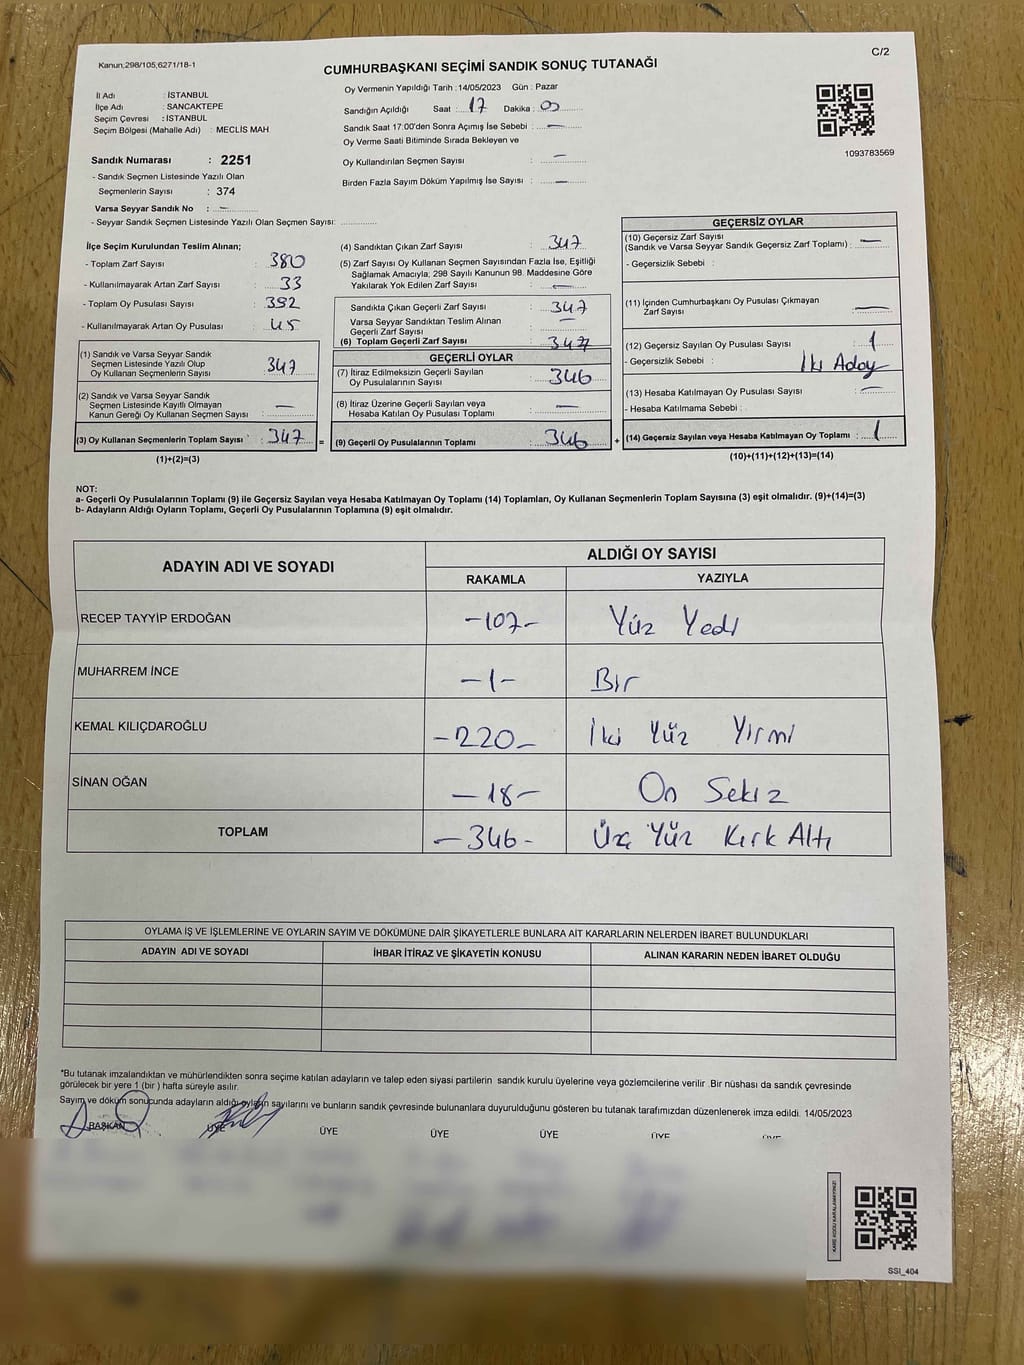 Kanun;298/105;6271/18-1
C/2
CUMHURBAŞKANI SEÇİMİ SANDIK SONUÇ TUTANAĞI
İl Adı : İSTANBUL
İlçe Adı : SANCAKTEPE
Seçim Çevresi : İSTANBUL
Seçim Bölgesi (Mahalle Adı) : MECLİS MAH
Sandık Numarası : 2251
- Sandık Seçmen Listesinde Yazılı Olan
Seçmenlerin Sayısı : 374
Varsa Seyyar Sandık No : —
- Seyyar Sandık Seçmen Listesinde Yazılı Olan Seçmen Sayısı:
Oy Vermenin Yapıldığı Tarih : 14/05/2023 Gün : Pazar
Sandığın Açıldığı Saat : 17 Dakika : 00
Sandık Saat 17:00'den Sonra Açımış İse Sebebi : —
Oy Verme Saati Bitiminde Sırada Bekleyen ve
Oy Kullandırılan Seçmen Sayısı : —
Birden Fazla Sayım Döküm Yapılmış İse Sayısı : —
1093783569
İlçe Seçim Kurulundan Teslim Alınan;
- Toplam Zarf Sayısı : 380
- Kullanılmayarak Artan Zarf Sayısı : 33
- Toplam Oy Pusulası Sayısı : 392
- Kullanılmayarak Artan Oy Pusulası : 45
(1) Sandık ve Varsa Seyyar Sandık
Seçmen Listesinde Yazılı Olup
Oy Kullanan Seçmenlerin Sayısı : 347
(2) Sandık ve Varsa Seyyar Sandık
Seçmen Listesinde Kayıtlı Olmayan
Kanun Gereği Oy Kullanan Seçmen Sayısı : —
(3) Oy Kullanan Seçmenlerin Toplam Sayısı : 347 =
(1)+(2)=(3)
(4) Sandıktan Çıkan Zarf Sayısı : 347
(5) Zarf Sayısı Oy Kullanan Seçmen Sayısından Fazla İse, Eşitliği
Sağlamak Amacıyla; 298 Sayılı Kanunun 98. Maddesine Göre
Yakılarak Yok Edilen Zarf Sayısı : —
Sandıkta Çıkan Geçerli Zarf Sayısı : 347
Varsa Seyyar Sandıktan Teslim Alınan
Geçerli Zarf Sayısı : —
(6) Toplam Geçerli Zarf Sayısı : 347
GEÇERLİ OYLAR
(7) İtiraz Edilmeksizin Geçerli Sayılan
Oy Pusulalarının Sayısı : 346
(8) İtiraz Üzerine Geçerli Sayılan veya
Hesaba Katılan Oy Pusulası Toplamı : —
(9) Geçerli Oy Pusulalarının Toplamı : 346 +
GEÇERSİZ OYLAR
(10) Geçersiz Zarf Sayısı
(Sandık ve Varsa Seyyar Sandık Geçersiz Zarf Toplamı) : —
- Geçersizlik Sebebi :
(11) İçinden Cumhurbaşkanı Oy Pusulası Çıkmayan
Zarf Sayısı : —
(12) Geçersiz Sayılan Oy Pusulası Sayısı : 1
- Geçersizlik Sebebi : İki Aday
(13) Hesaba Katılmayan Oy Pusulası Sayısı : —
- Hesaba Katılmama Sebebi :
(14) Geçersiz Sayılan veya Hesaba Katılmayan Oy Toplamı : 1
(10)+(11)+(12)+(13)=(14)
NOT:
a- Geçerli Oy Pusulalarının Toplamı (9) ile Geçersiz Sayılan veya Hesaba Katılmayan Oy Toplamı (14) Toplamları, Oy Kullanan Seçmenlerin Toplam Sayısına (3) eşit olmalıdır. (9)+(14)=(3)
b- Adayların Aldığı Oyların Toplamı, Geçerli Oy Pusulalarının Toplamına (9) eşit olmalıdır.
ADAYIN ADI VE SOYADI
ALDIĞI OY SAYISI
RAKAMLA YAZIYLA
RECEP TAYYİP ERDOĞAN -107- Yüz Yedi
MUHARREM İNCE -1- Bir
KEMAL KILIÇDAROĞLU -220- İki Yüz Yirmi
SİNAN OĞAN -18- On Sekiz
TOPLAM -346- Üç Yüz Kırk Altı
OYLAMA İŞ VE İŞLEMLERİNE VE OYLARIN SAYIM VE DÖKÜMÜNE DAİR ŞİKAYETLERLE BUNLARA AİT KARARLARIN NELERDEN İBARET BULUNDUKLARI
ADAYIN ADI VE SOYADI İHBAR İTİRAZ VE ŞİKAYETİN KONUSU ALINAN KARARIN NEDEN İBARET OLDUĞU
*Bu tutanak imzalandıktan ve mühürlendikten sonra seçime katılan adayların ve talep eden siyasi partilerin sandık kurulu üyelerine veya gözlemcilerine verilir .Bir nüshası da sandık çevresinde
görülecek bir yere 1 (bir ) hafta süreyle asılır.
Sayım ve döküm sonucunda adayların aldığı oyların sayılarını ve bunların sandık çevresinde bulunanlara duyurulduğunu gösteren bu tutanak tarafımızdan düzenlenerek imza edildi. 14/05/2023
BAŞKAN ÜYE ÜYE ÜYE ÜYE ÜYE ÜYE
KARE KODU KARALAMAYINIZ!
SSI_404